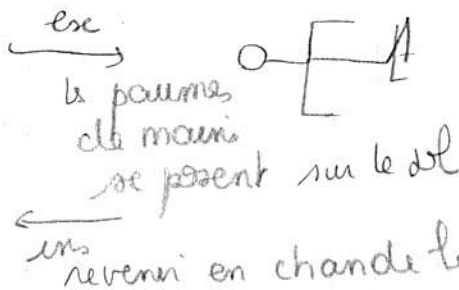 exc
ls paumes
de mains
se posent sur le sol
ins
revenir en chandelle